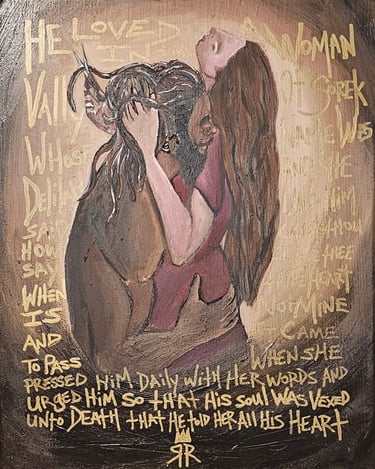 HE LOVED A WOMAN
IN
VALLY OF SOREK
WHOSE NAME WAS
DELILAH AND SHE
SAID HIM
HOW THOU
SAY THEE
WHEN HEART
IS NOT MINE
AND IT CAME
TO PASS WHEN SHE
PRESSED HIM DAILY WITH HER WORDS AND
URGED HIM SO THAT HIS SOUL WAS VEXED
UNTO DEATH THAT HE TOLD HER ALL HIS HEART
RR